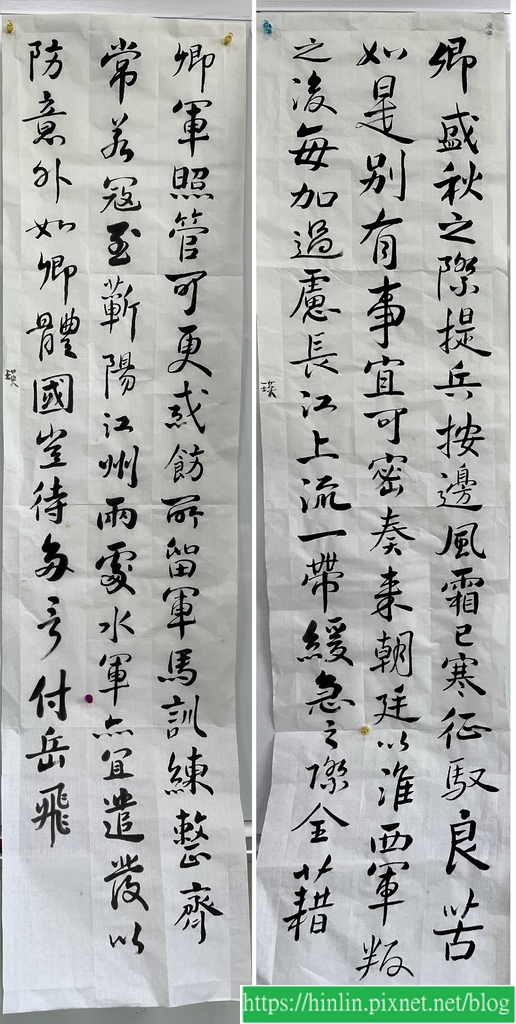 卿盛秋之際提兵按邊風霜已寒征馭良苦
如是別有事宜可密奏來朝廷以淮西軍叛
之後每加過慮長江上流一帶緩急之際全藉
卿軍照管可更戒飭所留軍馬訓練整齊
常若寇至蘄陽江州兩處水軍亦宜遣發以
防意外如卿體國豈待多言付岳飛
https://hinlin.pixnet.net/blog